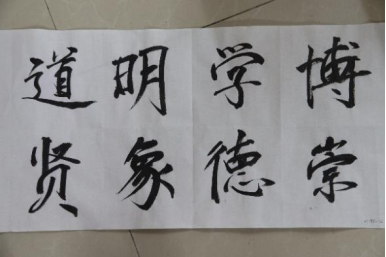 博学明道
崇德象贤